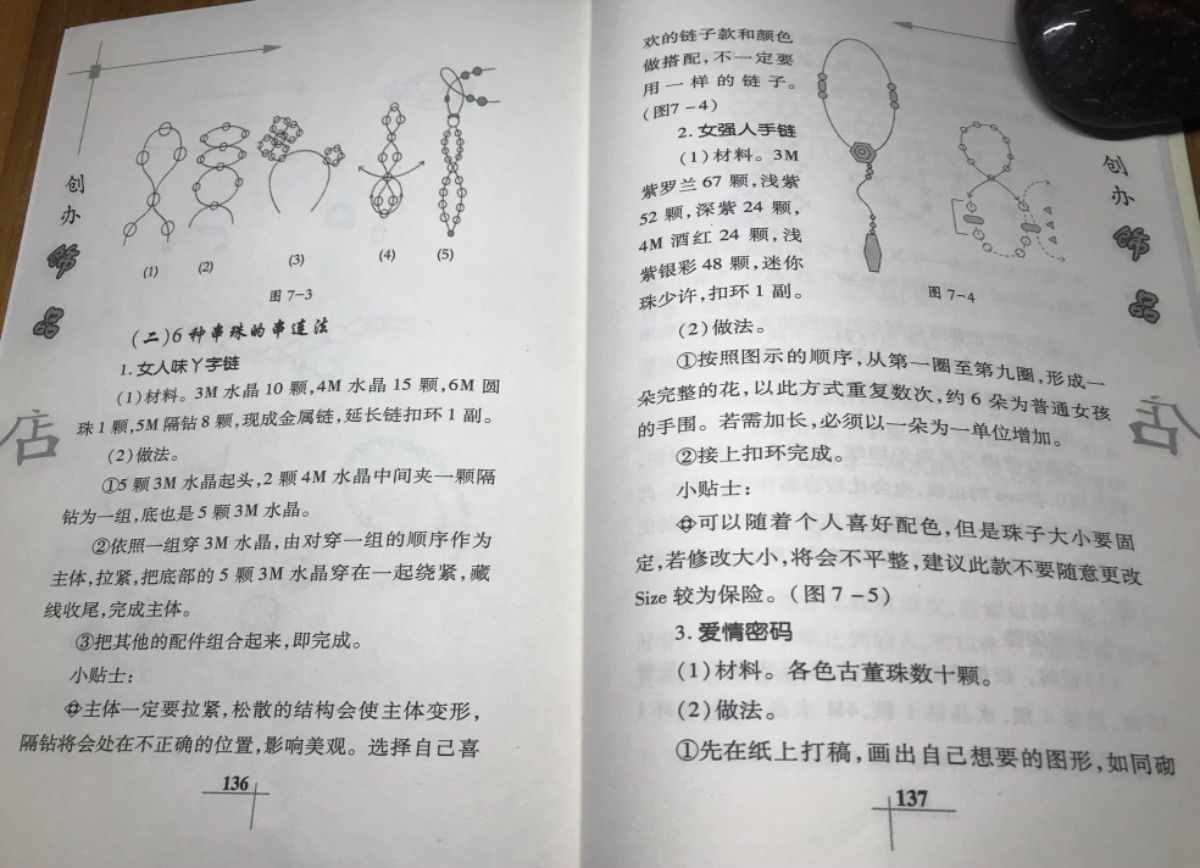 创办饰品店
(1)
(2)
(3)
(4)
(5)
图 7-3
(二)6 种串珠的串连法
1. 女人味丫字链
(1)材料。3M 水晶 10 颗,4M 水晶 15 颗,6M 圆
珠 1 颗,5M 隔钻 8 颗,现成金属链,延长链扣环 1 副。
(2)做法。
①5 颗 3M 水晶起头,2 颗 4M 水晶中间夹一颗隔
钻为一组,底也是 5 颗 3M 水晶。
②依照一组穿 3M 水晶,由对穿一组的顺序作为
主体,拉紧,把底部的 5 颗 3M 水晶穿在一起绕紧,藏
线收尾,完成主体。
③把其他的配件组合起来,即完成。
小贴士:
主体一定要拉紧,松散的结构会使主体变形,
隔钻将会处在不正确的位置,影响美观。选择自己喜
136
欢的链子款和颜色
做搭配,不一定要
用一样的链子。
(图7-4)
2. 女强人手链
(1)材料。3M
紫罗兰 67 颗,浅紫
52 颗,深紫 24 颗,
4M 酒红 24 颗,浅
紫银彩 48 颗,迷你
珠少许,扣环 1 副。
图 7-4
(2)做法。
①按照图示的顺序,从第一圈至第九圈,形成一
朵完整的花,以此方式重复数次,约 6 朵为普通女孩
的手围。若需加长,必须以一朵为一单位增加。
②接上扣环完成。
小贴士:
可以随着个人喜好配色,但是珠子大小要固
定,若修改大小,将会不平整,建议此款不要随意更改
Size 较为保险。(图 7-5)
3. 爱情密码
(1)材料。各色古董珠数十颗。
(2)做法。
①先在纸上打稿,画出自己想要的图形,如同砌
137
创办饰品店